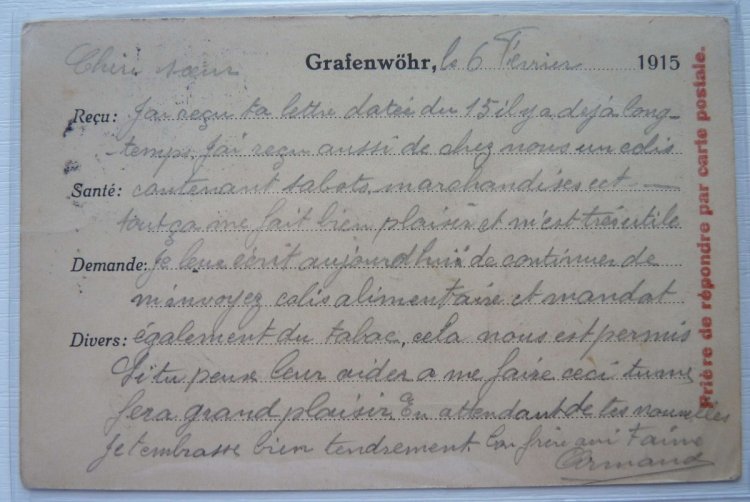 Chère sœur Grafenwöhr, le 6 Février 1915
Reçu: J'ai reçu ta lettre datée du 15 il y a dejà long-
temps, J'ai reçu aussi de chez nous un colis
Santé: contenant sabots, marchandises ect —
tout ça me fait bien plaisir et m'est très utile
Demande: Je leur écrit aujourdhui de continuer de
m'envoyez colis alimentaire et mandat
Divers: également du tabac, cela nous est permis
Si tu peux leur aider a me faire ceci tu me
fera grand plaisir. En attendant de tes nouvelles
Je t'embrasse bien tendrement Ton frère qui t'aime
Armand
Prière de répondre par carte postale.